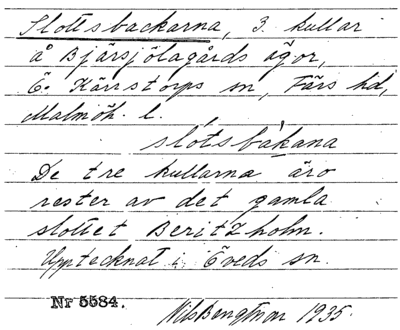 Slottsbackarna, 3. kullar
å Bjärsjölagårds ägor,
Ö. Kärrstorps sn, Färs hd,
Malmöh. l.
slótsbákana
De tre kullarna äro
rester av det gamla
slottet Beritzholm.
Upptecknat i Öveds sn.
Nr 5584.
Nils Bengtsson 1935.